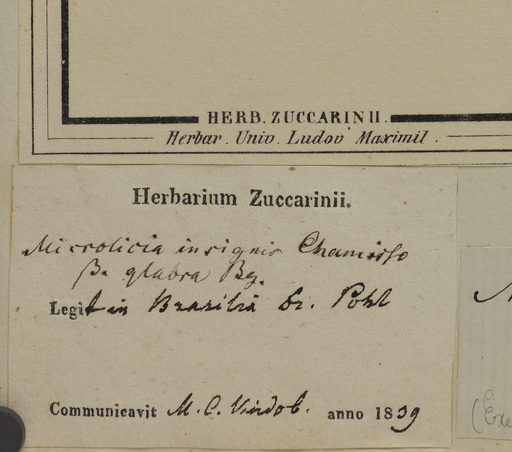 HERB. ZUCCARINII.
Herbar. Univ. Ludov. Maximil.
Herbarium Zuccarinii.
Microlicia insignis Chamisso
β. glabra Bg.
Legit in Brasilia Dr. Pohl
Communicavit M. C. Vindob. anno 1839
(Exe